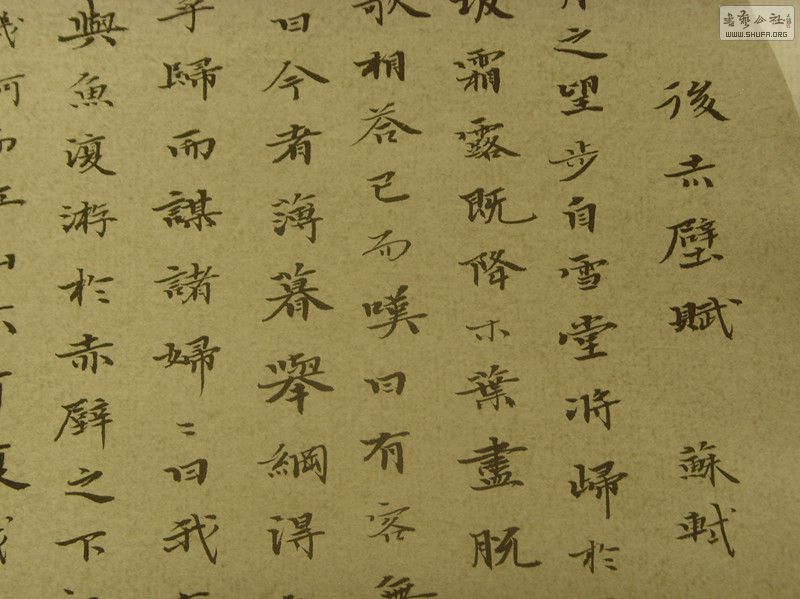 後赤壁賦 蘇軾
之望步自雪堂將歸於
坂霜露既降木葉盡脫
歌相答已而嘆曰有客無
曰今者薄暮舉網得
歸而謀諸婦〻曰我
與魚復游於赤壁之下
書藝公社
WWW.SHUFA.ORG